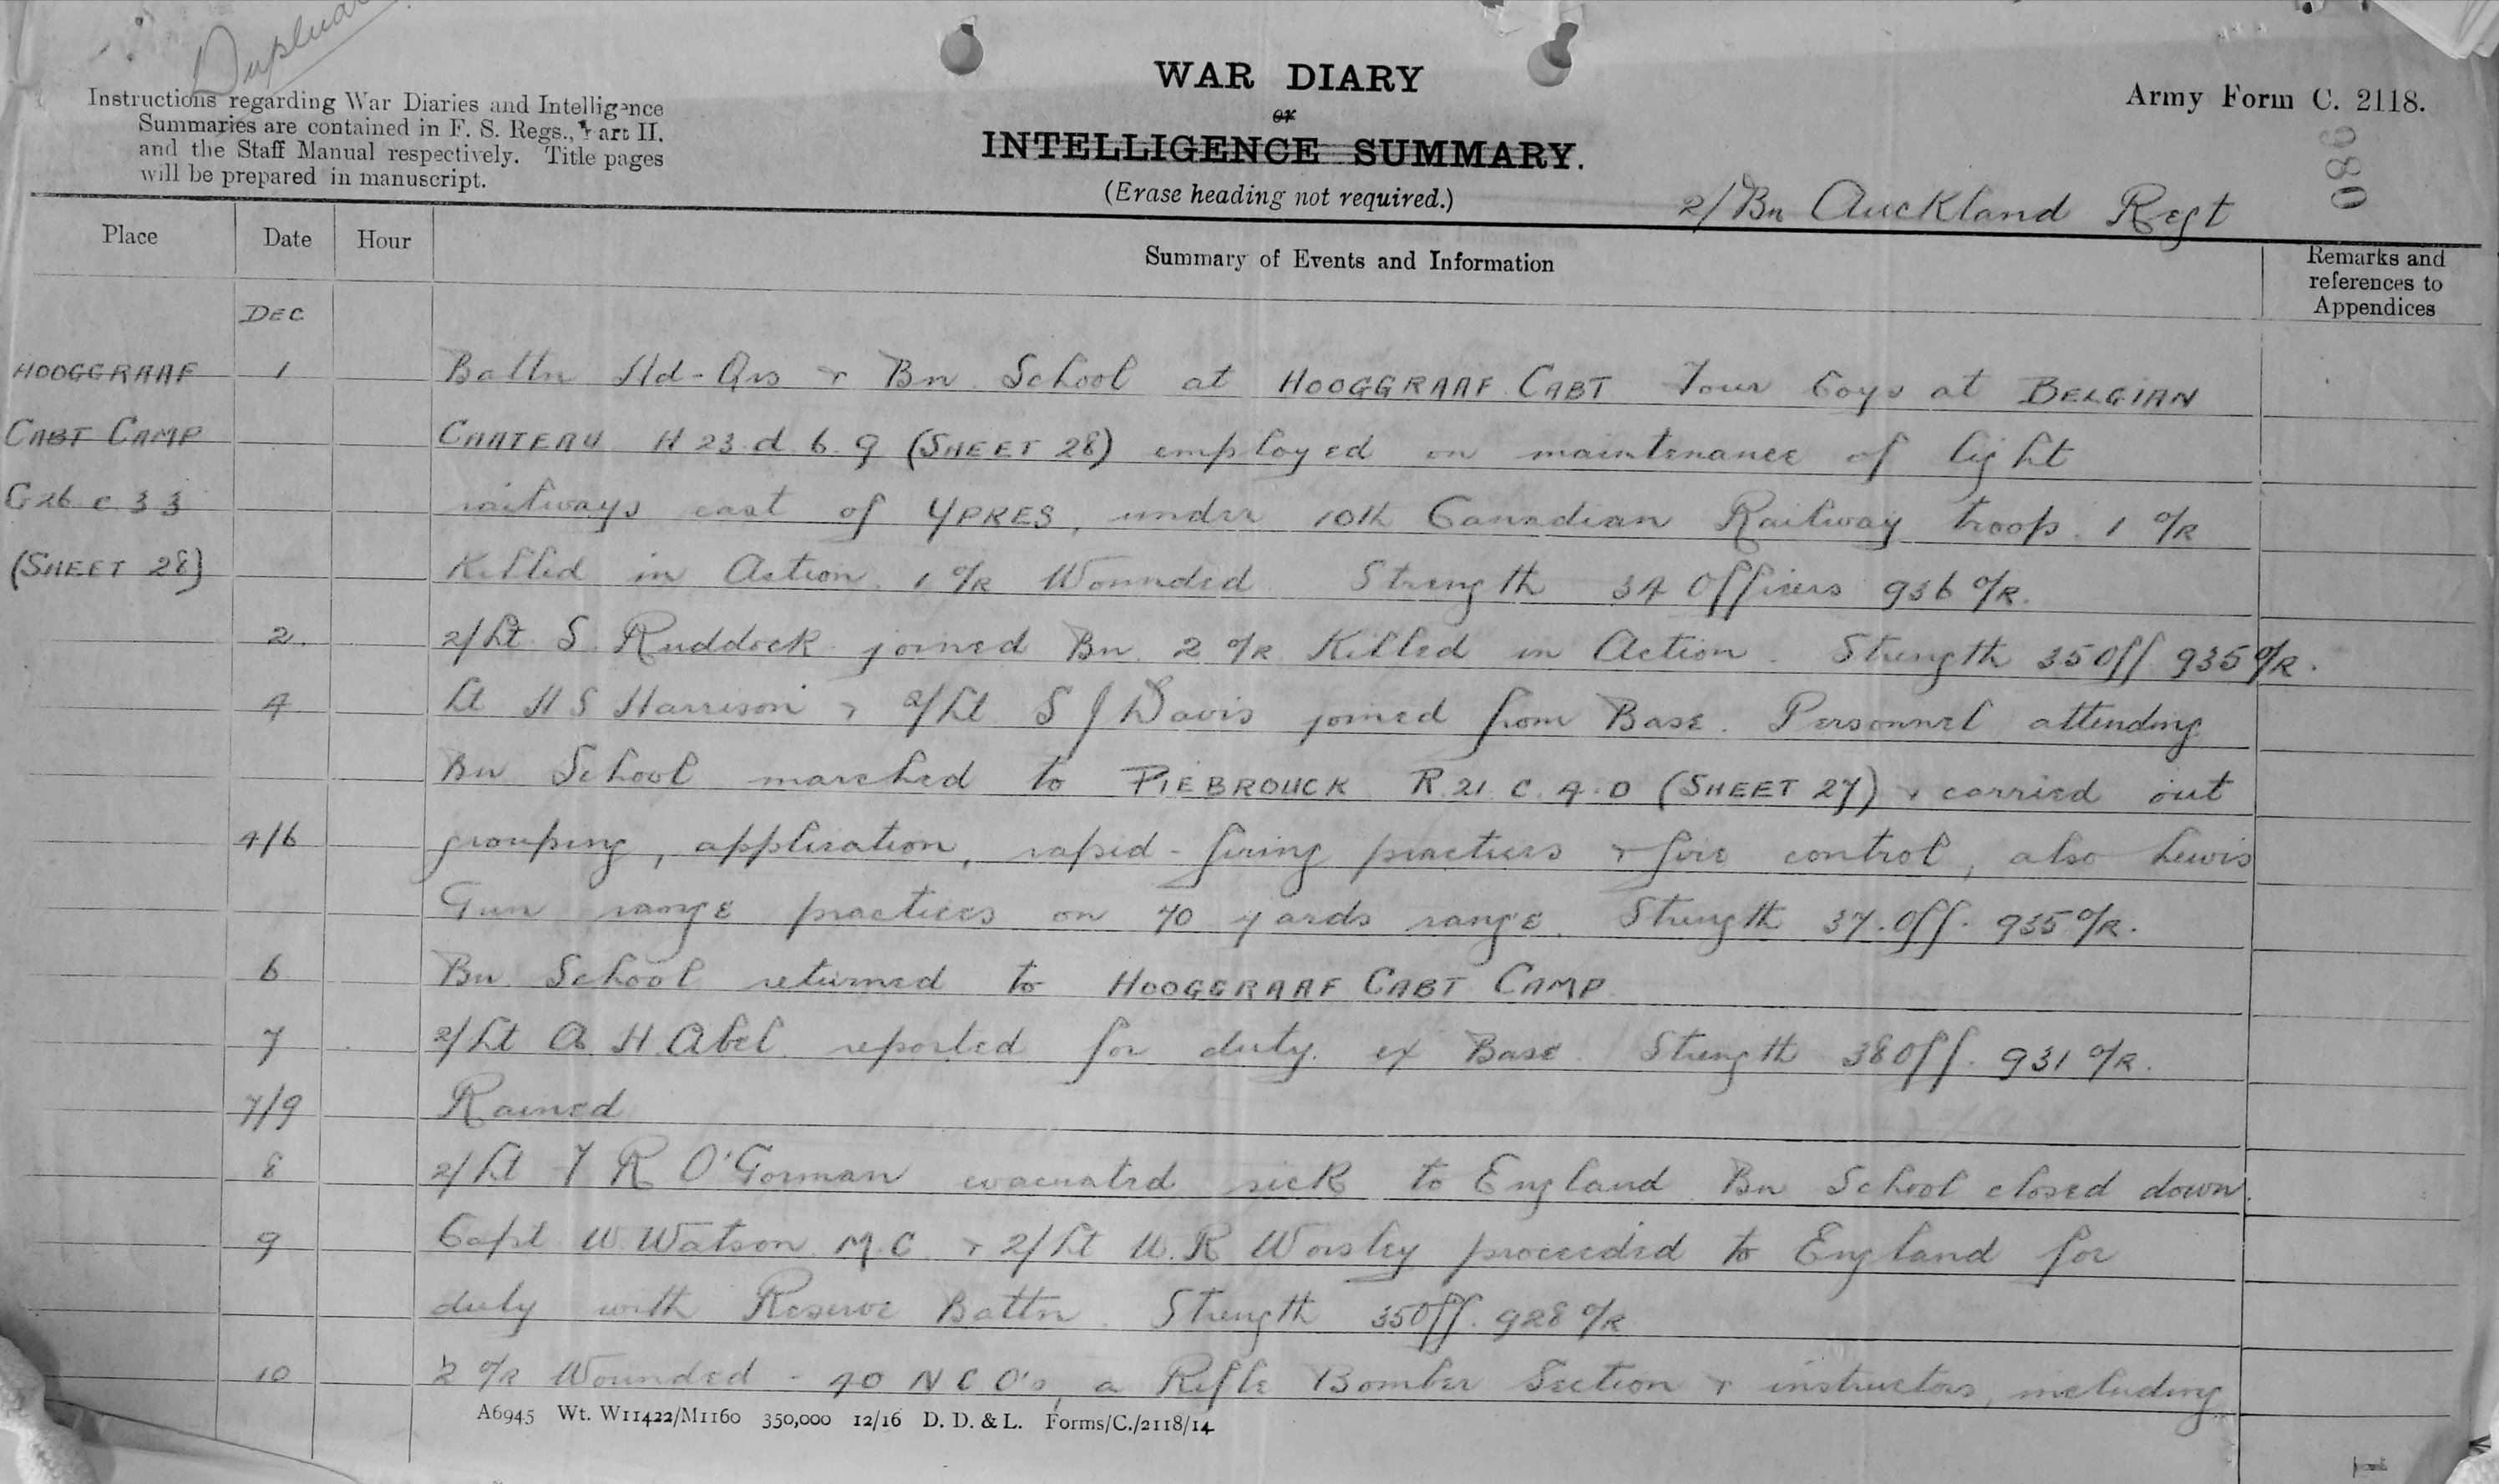 Duplicate
Instructions regarding War Diaries and Intelligence
Summaries are contained in F. S. Regs., Part II.
and the Staff Manual respectively. Title pages
will be prepared in manuscript.
WAR DIARY
or
INTELLIGENCE SUMMARY.
(Erase heading not required.)
Army Form C. 2118.
080
2/Bn Auckland Regt
Place Date Hour Summary of Events and Information Remarks and
references to
Appendices
DEC
HOOGGRAAF 1 Battn Hd-Qrs & Bn. School at HOOGGRAAF CABT Four Coys at BELGIAN
CABT CAMP CHATEAU H 23 d. 6. 9 (SHEET 28) employed on maintenance of light
G26 c 3 3 railways east of YPRES, under 10th Canadian Railway troops. 1 O/R
(SHEET 28) Killed in Action. 1 O/R Wounded. Strength 34 Officers 936 O/R.
2. 2/Lt S. Ruddock joined Bn. 2 O/R Killed in Action. Strength 35 Off 935 O/R.
4 Lt H S Harrison & 2/Lt S J Davis joined from Base. Personnel attending
Bn School marched to PIEBROUCK R. 21. C. 4. 0 (SHEET 27) & carried out
4/6 grouping, application, rapid-firing practices & fire control, also Lewis
Gun range practices on 70 yards range. Strength 37. Off. 935 O/R.
6 Bn. School returned to HOOGGRAAF CABT CAMP.
7 2/Lt A. H. Abel reported for duty. ex Base. Strength 38 Off. 931 O/R.
7/9 Rained
8 2/Lt T R O'Gorman evacuated sick to England. Bn School closed down.
9 Capt W. Watson M.C. & 2/Lt W. R Worsley proceeded to England for
duty with Reserve Battn. Strength 35 Off. 928 O/R
10 2 O/R Wounded - 40 N C O's, a Rifle Bomber Section & instructors, including
A6945 Wt. W11422/M1160 350,000 12/16 D. D. & L. Forms/C./2118/14